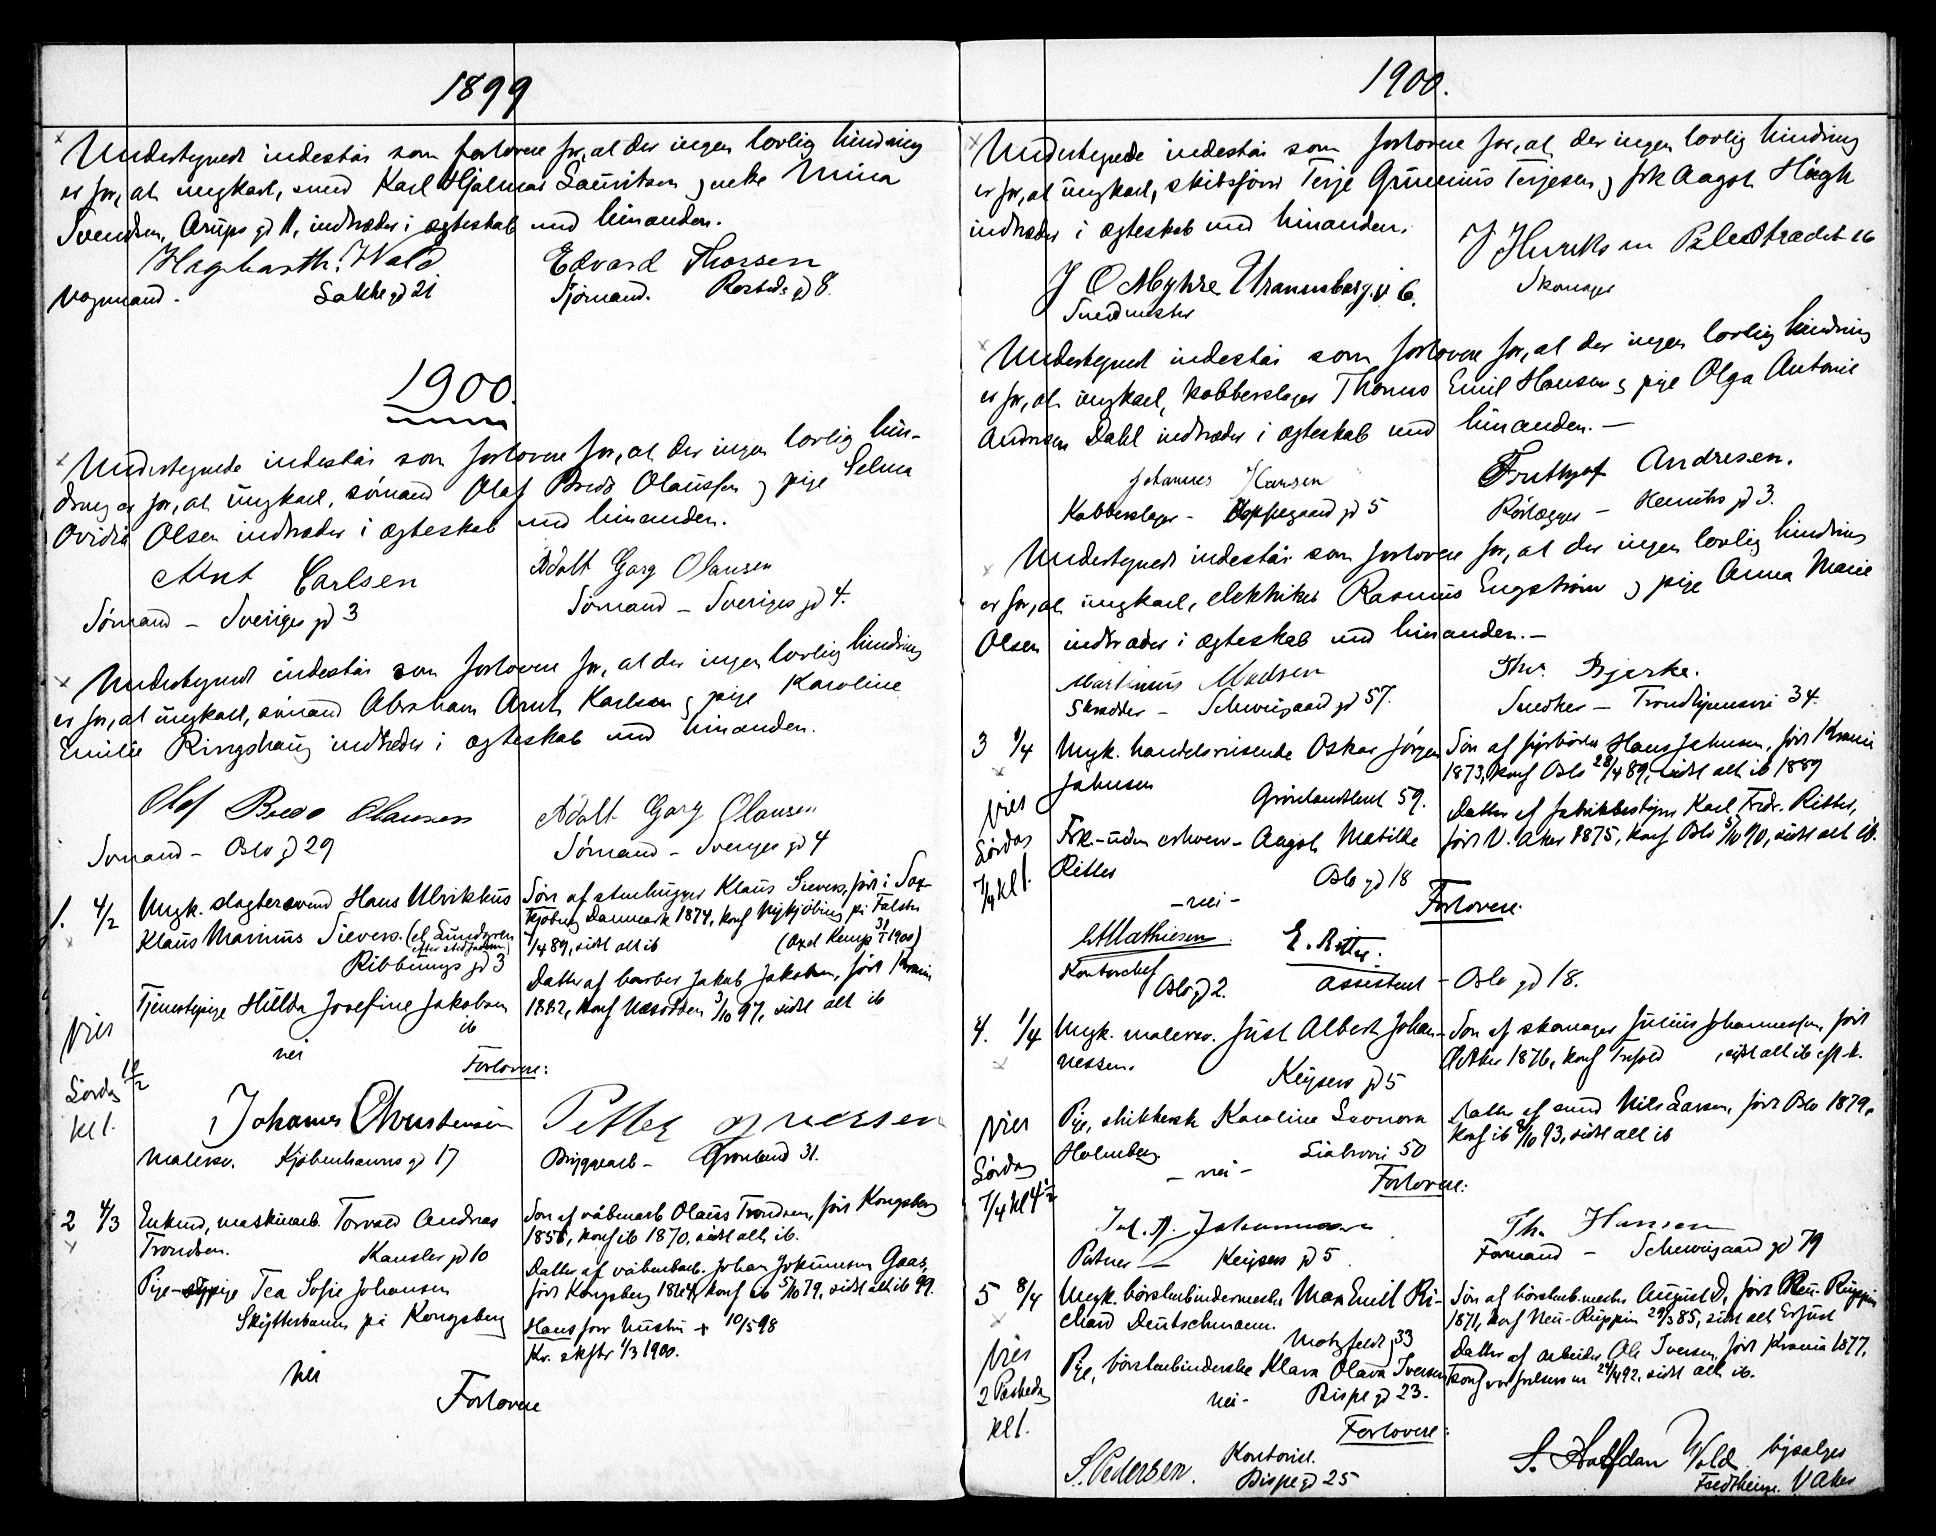 1899
Undertegnede indestår som forlovere for, at der ingen lovlig hindring
er for, at ungkarl, smed Karl Hjalmar Lauritsen og enke Mina
Svendsen, Arups gd 11, indtræder i ægteskab med hinanden.
Hagbarth Wold Edvard Thorsen
Vognmand. Lakke gd 21 Sjømand. Rosteds gd 8.
1900.
Undertegnede indestår som forlovere for, at der ingen lovlig hin-
dring er for, at ungkarl, sømand Olaf Bredo Olaussen og pige Selma
Ovidia Olsen indtræder i ægteskab med hinanden.
Arnt Carlsen Adolt Georg Olausen
Sømand - Sveriges gd 3 Sømand - Sveriges gd 4.
Undertegnede indestår som forlovere for, at der ingen lovlig hindring
er for, at ungkarl, sømand Abraham Arnt Karlsen og pige Karoline
Emilie Ringshaug indtræder i ægteskab med hinanden.
Olaf Bredo Olausen Adolt Georg Olausen
Sømand - Oslo gd 29 Sømand - Sveriges gd 4
1. 4/2 Ungk. slagtersvend Hans Ulrikkus Søn af stenhugger Klaus Sievers, født i Sax-
Klaus Marinus Sievers. (el. Lundgren kjøbing Danmark 1874, konf Nykjøbing på Falster
efter stedfaderen) /4 89, sidst alt ib (Axel Kemp 31/1 1900)
Ribbungs gd 3
Datter af barber Jakob Jakobsen, født Krania
Tjenestepige Hilda Josefine Jakobsen 1882, konf Næsodden 3/10 97, sidst alt ib
ib
Vies
nei
Forlovere:
Lørdag 10/2
kl 1.
Johannes Christensen Petter Iversen
Malersv. Kjøbenhavns gd 17 Bryggearb - Grønland 31.
2 4/3 Enkmd, maskinarb. Torvald Andreas Søn af våbenarb Olaus Trondsen, født Kongsberg
Trondsen. Kanslergd 10 1856, konf ib 1870, sidst alt ib.
Datter af våbenarb. Johan Johannesen Gaas,
Pige - Tea Sofie Johansen født Kongsberg 1864, konf ib 5/10 79, sidst alt ib 99.
Skytterbanen på Kongsberg Hans forr hustru + 10/5 98
Kr. skftr 1/3 1900.
nei
Forlovere
1900.
Undertegnede indestår som forlovere for, at der ingen lovlig hindring
er for, at ungkarl, skibsfører Terje Grunnius Terjesen og frk Aagot Høgh
indtræder i ægteskab med hinanden.
J O Myhre Uranienborg.v 6. J Henriksen Pilestrædet 16
Snedmester Skomager
Undertegnede indestår som forlovere for, at der ingen lovlig hindring
er for, at ungkarl, kobberslager Thomas Emil Hansen og pige Olga Antonie
Andresen Dahl indtræder i ægteskab med hinanden. -
Johannes Hansen Frithjof Andresen.
Kobberslager - Hopsegaard gd 5 Rørlægger - Heimdals gd 3.
Undertegnede indestår som forlovere for, at der ingen lovlig hindring
er for, at ungkarl, elektriker Rasmus Engstrøm og pige Anna Marie
Olsen indtræder i ægteskab med hinanden. -
Martinus Madsen Thv. Bjerke.
Skrædder - Schweigaard gd 57. Snedker - Trondhjemsvei 34.
3 1/4 Ungk. handelsreisende Oskar Jørgen Søn af fyrbøder Hans Jahnsen, født Krania
Jahnsen 1873, konf Oslo 28/4 89, sidst alt ib 1889
Grønlandsleret 59.
Vies Datter af fabrikbestyrer Karl Fredr. Ritter,
Lørdag Frk - uden erhverv - Aagot Matilde født V. Aker 1875, konf Oslo 5/10 90, sidst alt ib.
7/4 kl 1. Ritter Oslo gd 18
- nei - Forlovere.
Mathiesen. E. Ritter.
Kontorchef Oslo gd 2. Assistent - Oslo gd 18.
4. 1/4 Ungk. malersv. Just Albert Johan- Søn af skomager Julius Johannessen, født
nessen. Ø Aker 1876, konf Trefold , sidst alt ib
Keysers gd 5
Vies Pige, Karoline Leonora Datter af smed Nils Larsen, født Oslo 1879,
Holmberg. Liabrovei 50 konf ib 8/10 93, sidst alt ib
Lørdag - nei - Forlovere:
7/4 kl 4 1/2
Jul. A. Johannessen Th. Hansen
Keysers gd 5 Formand - Schweigaard gd 79
5 8/4 Ungk. børstenbindermester Max Emil Ri- Søn af børstenb.mester August D, født Neu-Ruppin
chard Deutschmann. 1871, konf Neu-Ruppin 29/3 85, sidst alt Erfurt
Motzfeldt gd 33
Vies Pige, børstenbinderske Klara Olava Iversen Datter af arbeider Ole Iversen, født Krania 1877,
2 Påskedag nei - Bispe gd 23. konf vor frelsers m 24/4 92, sidst alt ib.
kl 1. Forlovere:
S. Pedersen. Kontorist. S. Halfdan Wold bysælger
Bispe gd 25 Fredheim. V Aker